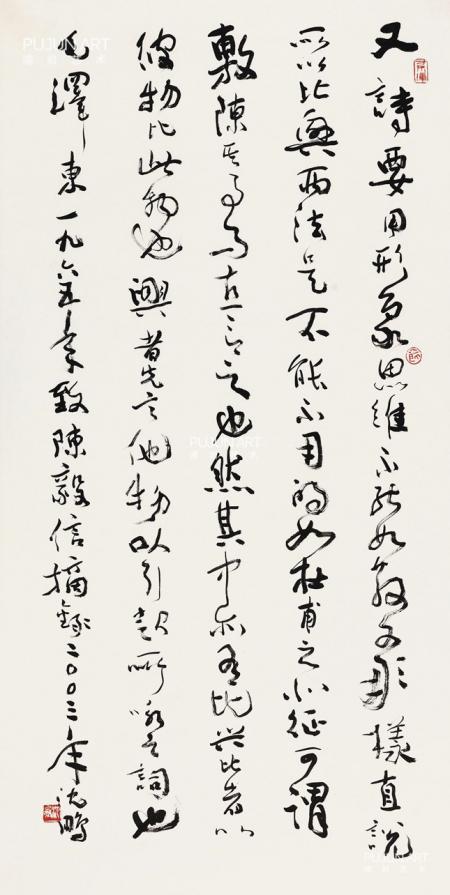 又詩要用形象思維不能如散文那樣直說
所以比興兩法是不能不用的如杜甫之北征可謂
敷陳其事而直言之也然其中亦有比兴比者以
彼物比此物也興者先言他物以引起所咏之詞也
毛澤東一九六五年致陳毅信摘錄二〇〇三年沈鵬
PUJUN ART
PUJUN ART